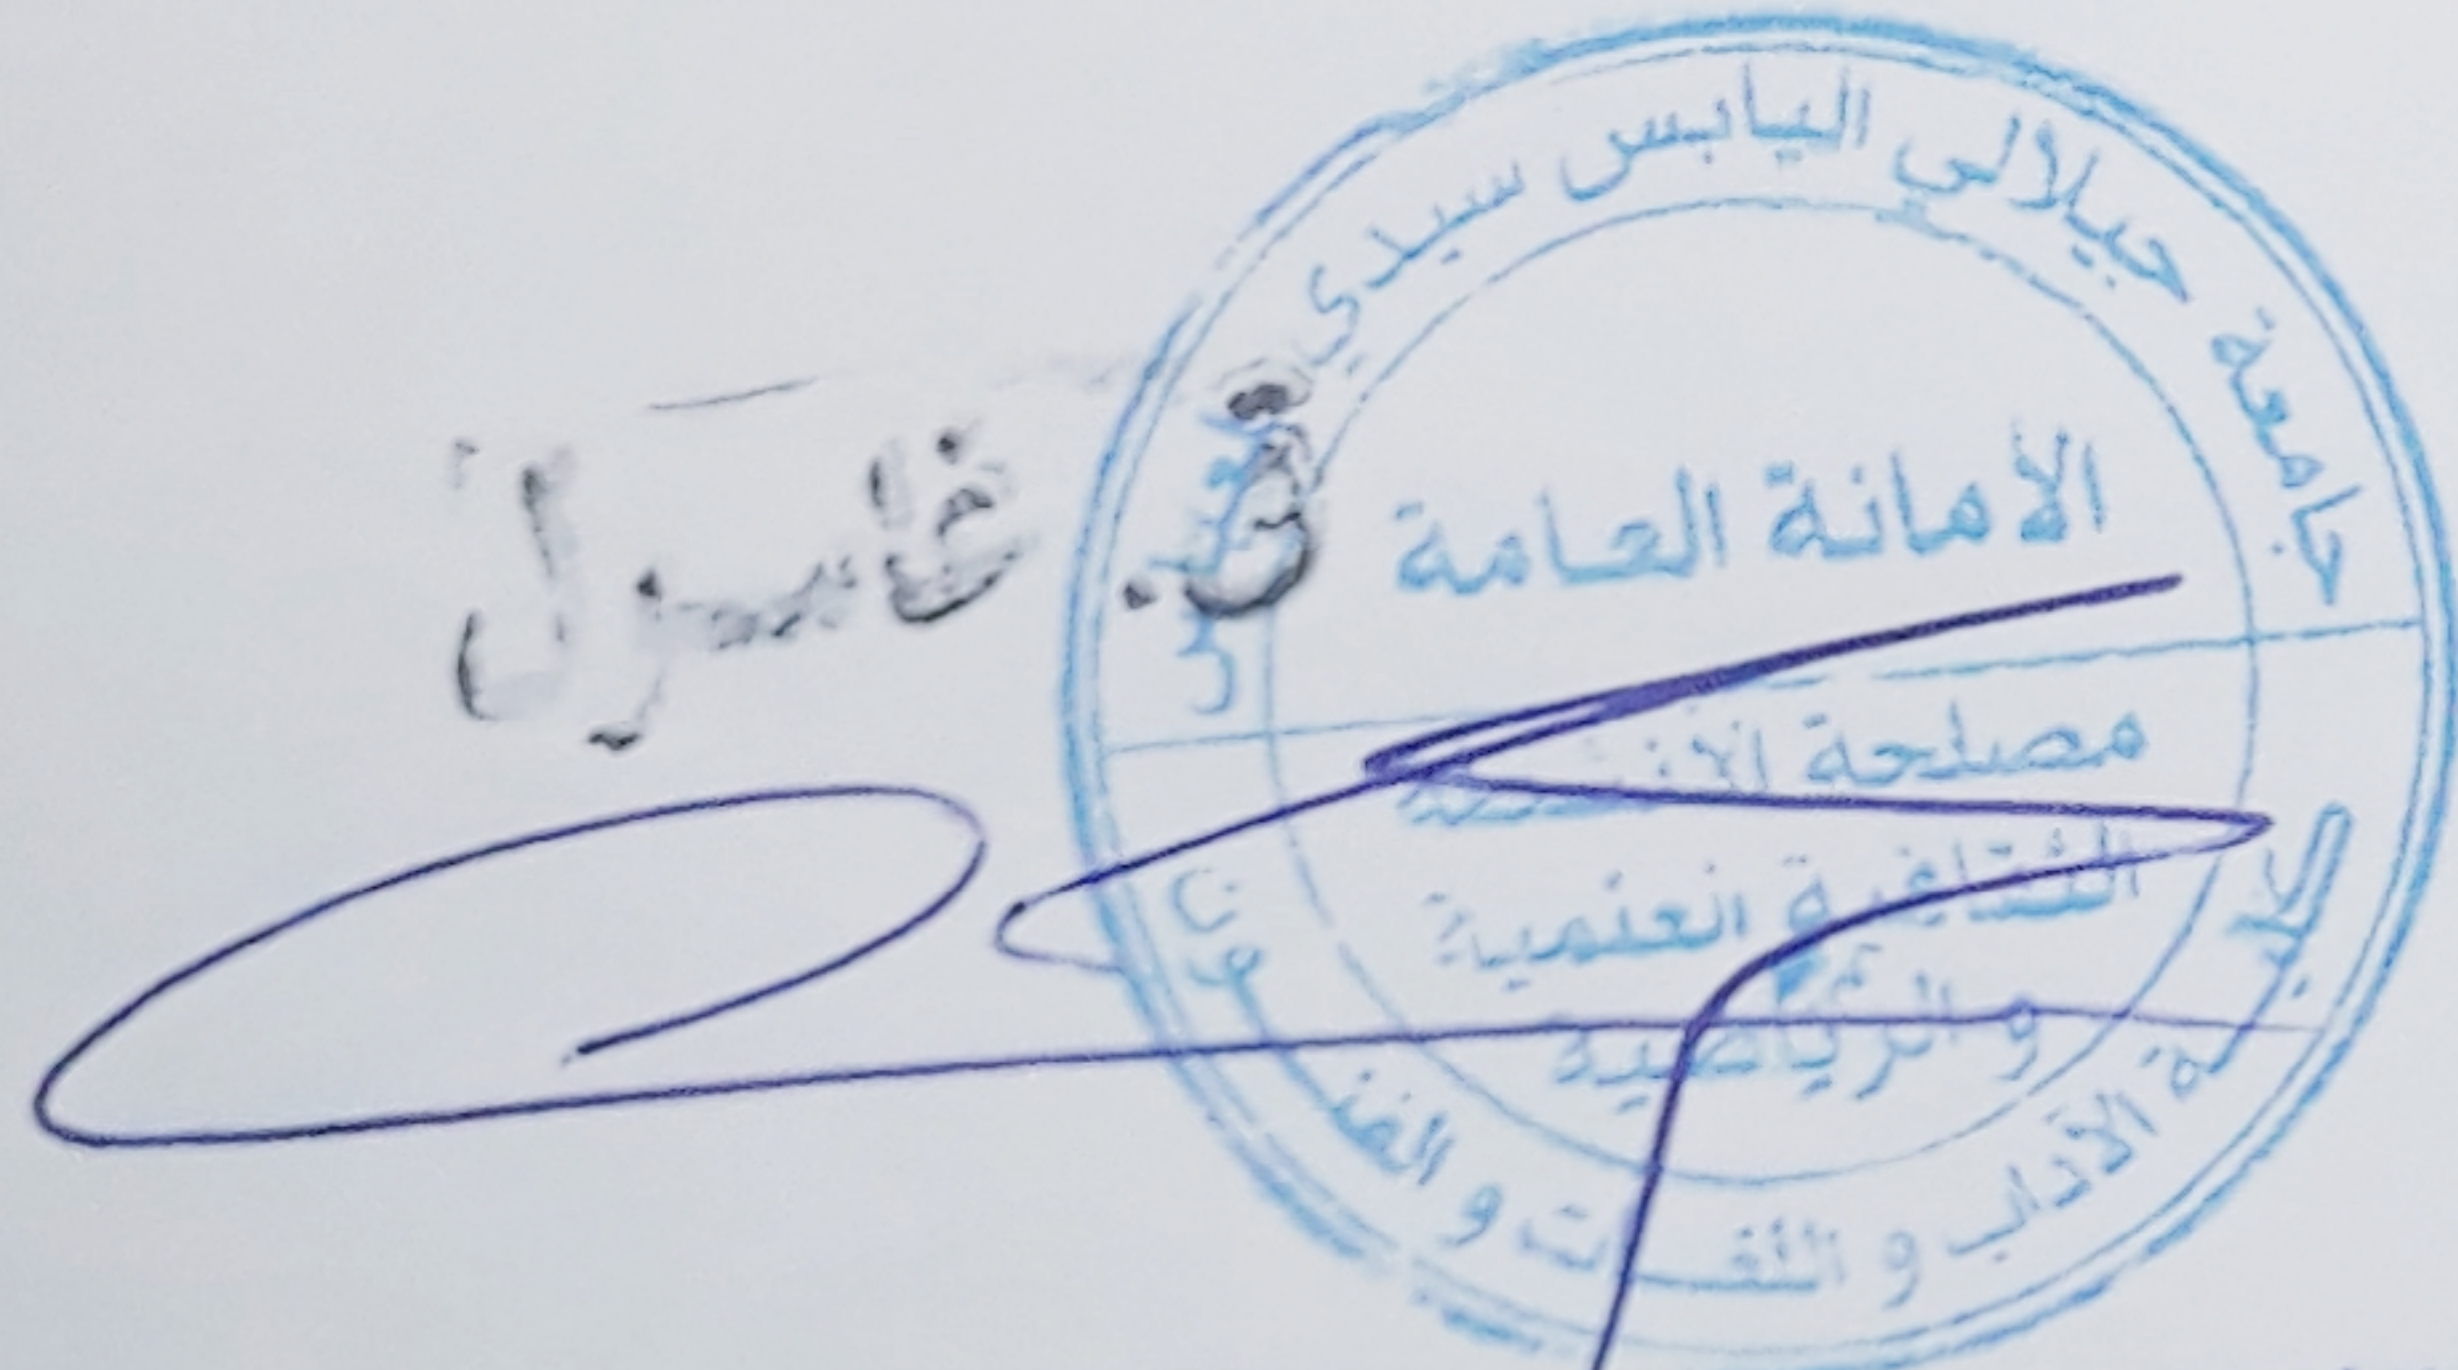 جامعة جيلالي اليابس سيدي
الأمانة العامة
مصلحة
الثقافية العلمية
و الرياضية
كلية الآداب و اللغات و الفنون